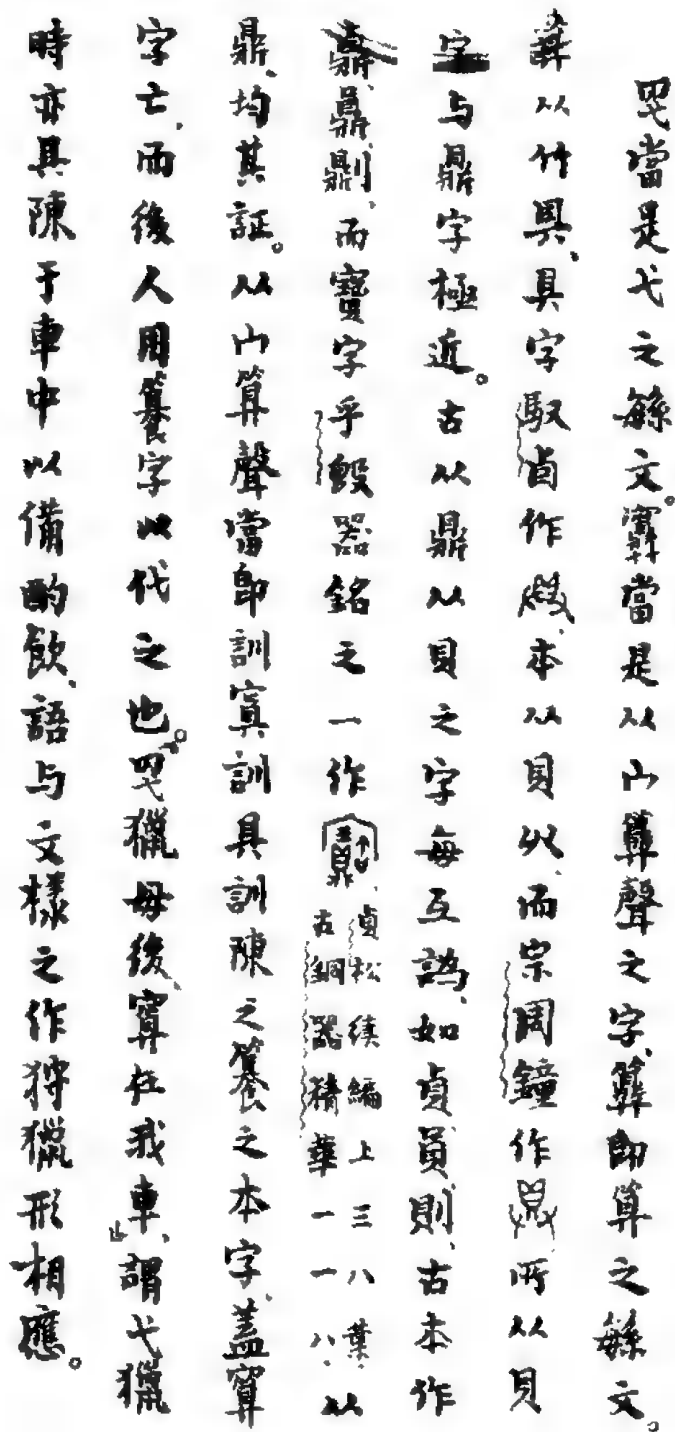 𦉪當是弋之繇文。𡪹當是从宀𥴩聲之字、𥴩即算之繇文。
从竹具、具字馭卣作、本从貝从、而宗周鐘作所从貝
字与鼎字極近。古从鼎从貝之字每互譌、如貞員則、古本作
鼑鼏鼎刂、而寶字乎𣪘器銘之一作貞松續編上三八葉古銅器精華一一八、以
鼎、均其証。从宀算聲當即訓寘訓具訓陳之籑之本字、蓋𡩃
字亡、而後人用籑字以代之也。𦉪獵毋後、𡩃在我車、謂弋獵
時亦具陳于車中以備酌飲、語与文樣之作狩獵形相應。